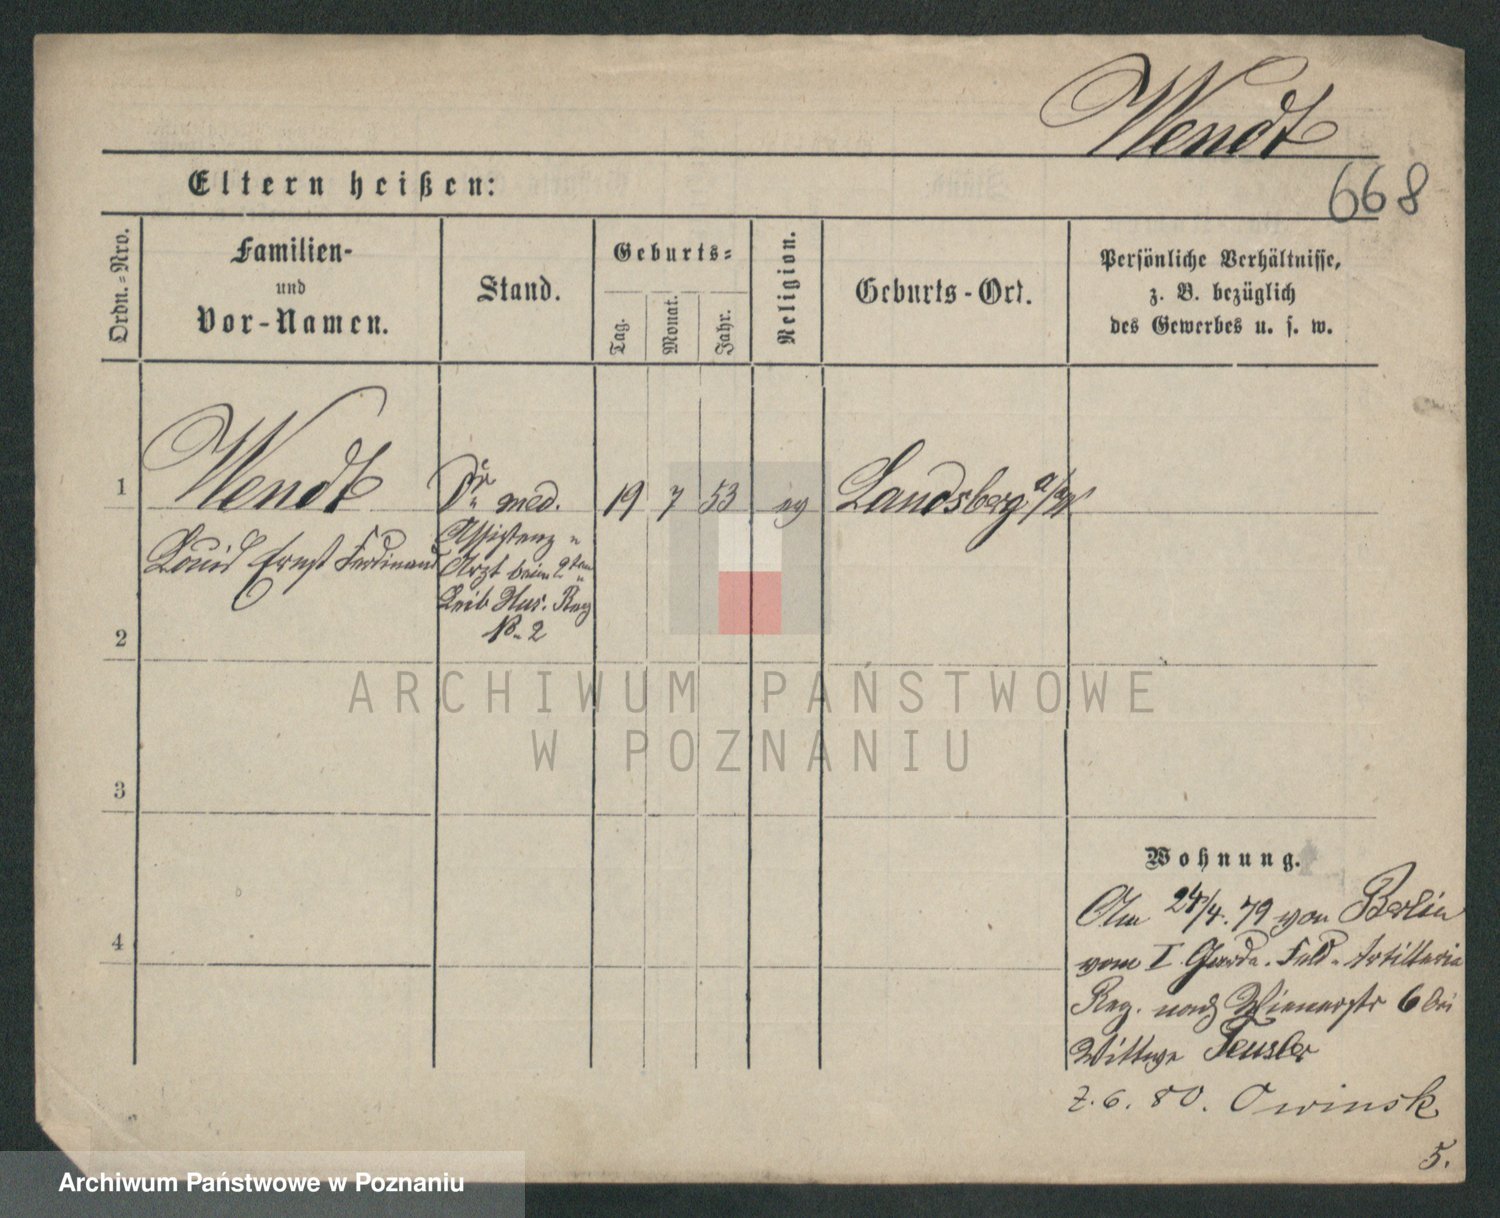 Wendt
Eltern heißen:
668
Ordn.-Nro.
Familien-
und
Vor-Namen.
Stand.
Geburts-
Tag.
Monat.
Jahr.
Religion.
Geburts-Ort.
Persönliche Verhältnisse,
z. B. bezüglich
des Gewerbes u. s. w.
1
Wendt
Dr med.
19
7
53
ev
Landsberg a/W
Louis Ernst Ferdinand
Assistenz
Arzt beim 2ten
Leib Hus. Reg
No 2
2
ARCHIWUM PAŃSTWOWE
W POZNANIU
3
Wohnung.
4
Am 24/4. 79 von Berlin
vom I. Garde. Feld-Artillerie
Reg. nach Wienerstr 6 bei
Wittwe Teusler
2. 6. 80. Owinsk
5.
Archiwum Państwowe w Poznaniu